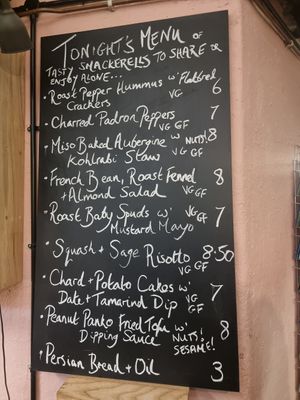 TONIGHT'S MENU OF
TASTY SNACKERELS TO SHARE OR
ENJOY ALONE...
• Roast Pepper Hummus w' Flatbread 6
Crackers VG
• Charred Padron Peppers 7
VG GF
• Miso Baked Aubergine w' NUTS! 8
Kohlrabi Slaw VG GF
• French Bean, Roast Fennel 8
+ Almond Salad VG GF
• Roast Baby Spuds w' VG GF 7
Mustard Mayo
• Squash + Sage Risotto 8.50
VG GF
• Chard + Potato Cakes w' 7
Date + Tamarind Dip VG GF
• Peanut Panko Fried Tofu w' 8
Dipping Sauce NUTS!
SESAME!
• Persian Bread + Oil 3